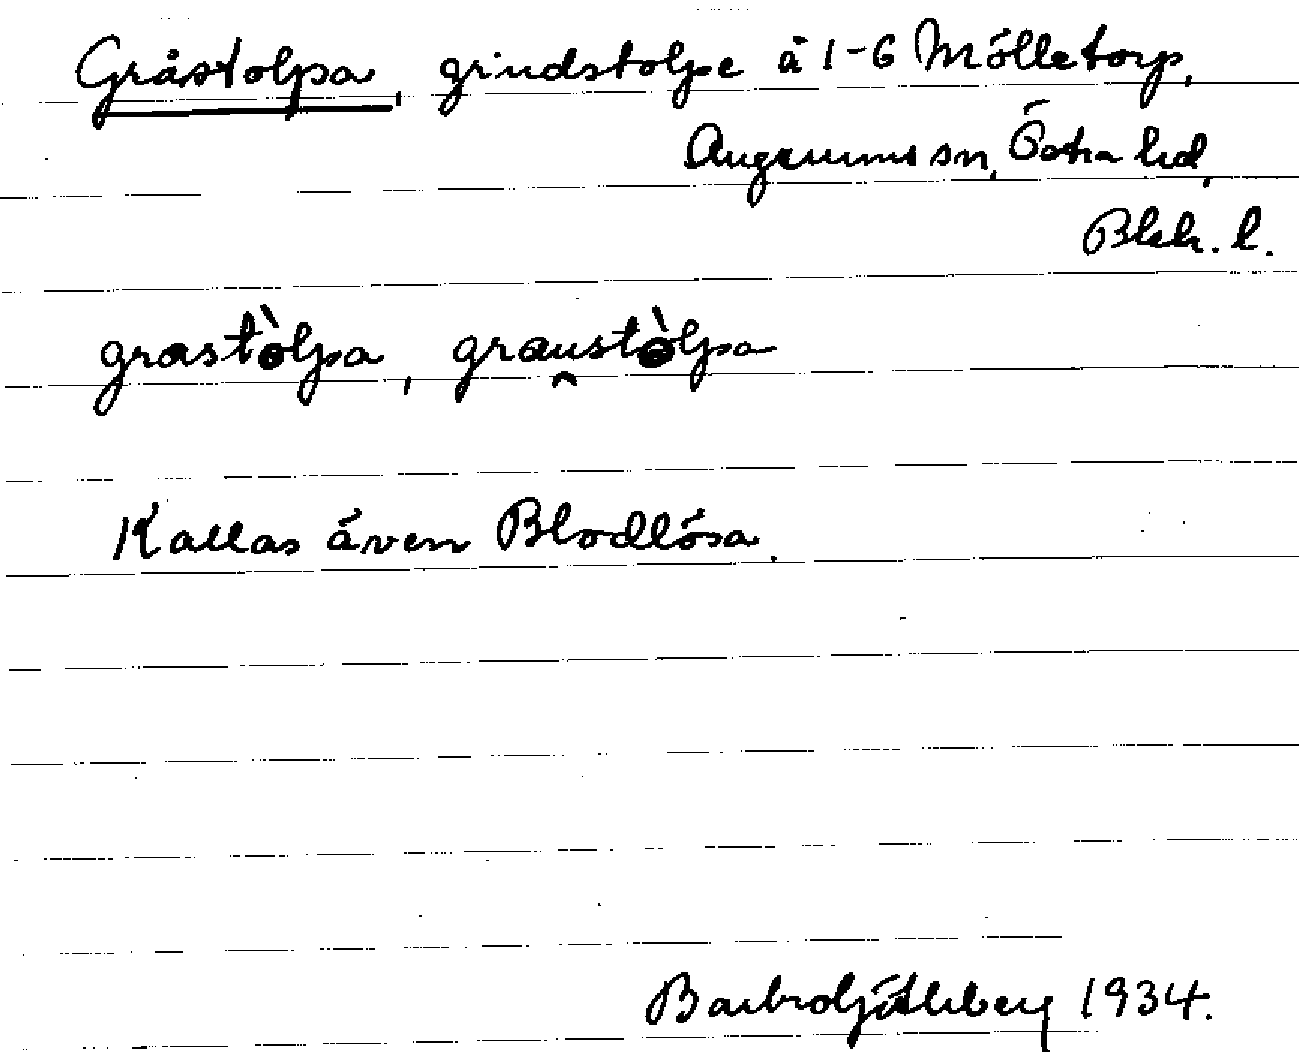 Gråstolpa, grindstolpe å 1-6 Mölletorp,
Augerums sn, Östra hd,
Blek. l.
grastòlpa, grau̯stòlpa
Kallas även Blodlösa.
Barbro 1934.